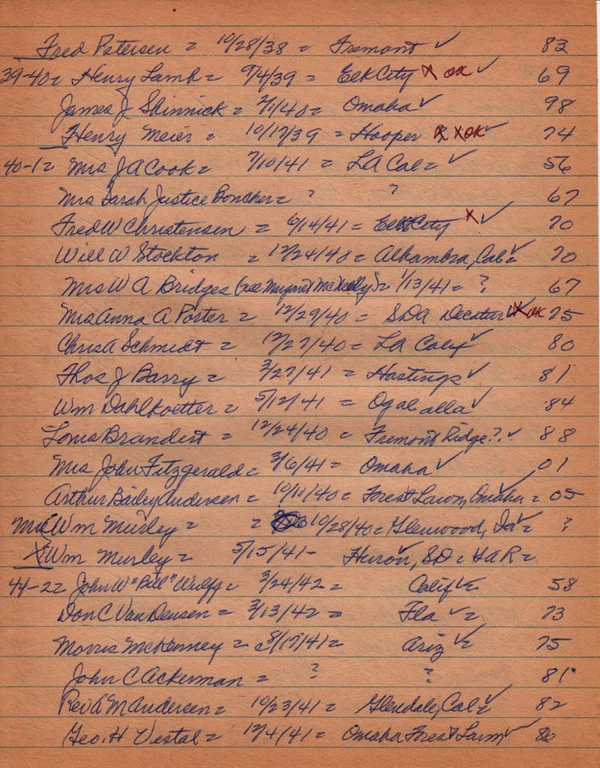 Fred Petersen = 10/28/38 = Fremont ✓ 83
39-40= Henry Lamb = 9/4/39 = Elk City X OK ✓ 69
James J Skinnick = 2/1/40 = Omaha ✓ 98
Henry Meier = 10/17/39 = Hooper X X OK ✓ 74
40-1= Mrs J A Cook = 7/10/41 = LA Cal = ✓ 56
Mrs Sarah Justice Boucher = ? ? 67
Fred W Christensen = 6/14/41 = Elk City X ✓ 70
Will W Stockton = 12/24/40 = Alhambra, Cal = ✓ 70
Mrs W A Bridges (nee Margaret McNelly) = 1/13/41 = ? 67
Mrs Anna A Porter = 12/29/40 = SDA Decatur ✓ X OK 75
Chris A Schmidt = 12/27/40 = LA Calif ✓ 80
Thos J Barry = 3/27/41 = Hastings ✓ 81
Wm Dahlkoetter = 5/12/41 = Ogalalla ✓ 84
Louis Brandert = 12/24/40 = Fremont Ridge? ✓ 88
Mrs John Fitzgerald = 3/6/41 = Omaha ✓ 01
Arthur Bailey Andersen = 10/11/40 = Forest Lawn, Omaha = ✓ 05
Mrs Wm Murley = = 10/28/40 = Glenwood, Ia ✓ = ?
X Wm Murley = 5/15/41 - Huron, SD = GAR =
41-2= John W "Bill" Wulff = 3/24/42 = Calif ✓ = 58
Don C Van Deusen = 3/13/42 = Fla ✓ = 73
Morris McKenney = 8/17/41 = Ariz ✓ = 75
John C Ackerman = ? ? 81
Rev A M Andersen = 10/23/41 = Glendale, Cal = ✓ 82
Geo. H Vestal = 12/4/41 = Omaha Forest Lawn ✓